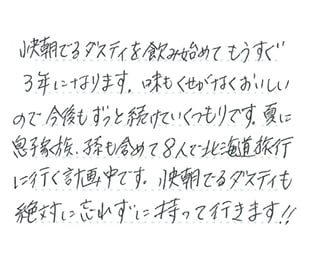 快朝でるダスティを飲み始めてもうすぐ
3年になります。味もくせがなくおいしい
ので今後もずっと続けていくつもりです。夏に
息子家族、孫も含めて8人で北海道旅行
に行く計画中です。快朝でるダスティも
絶対に忘れずに持って行きます!!